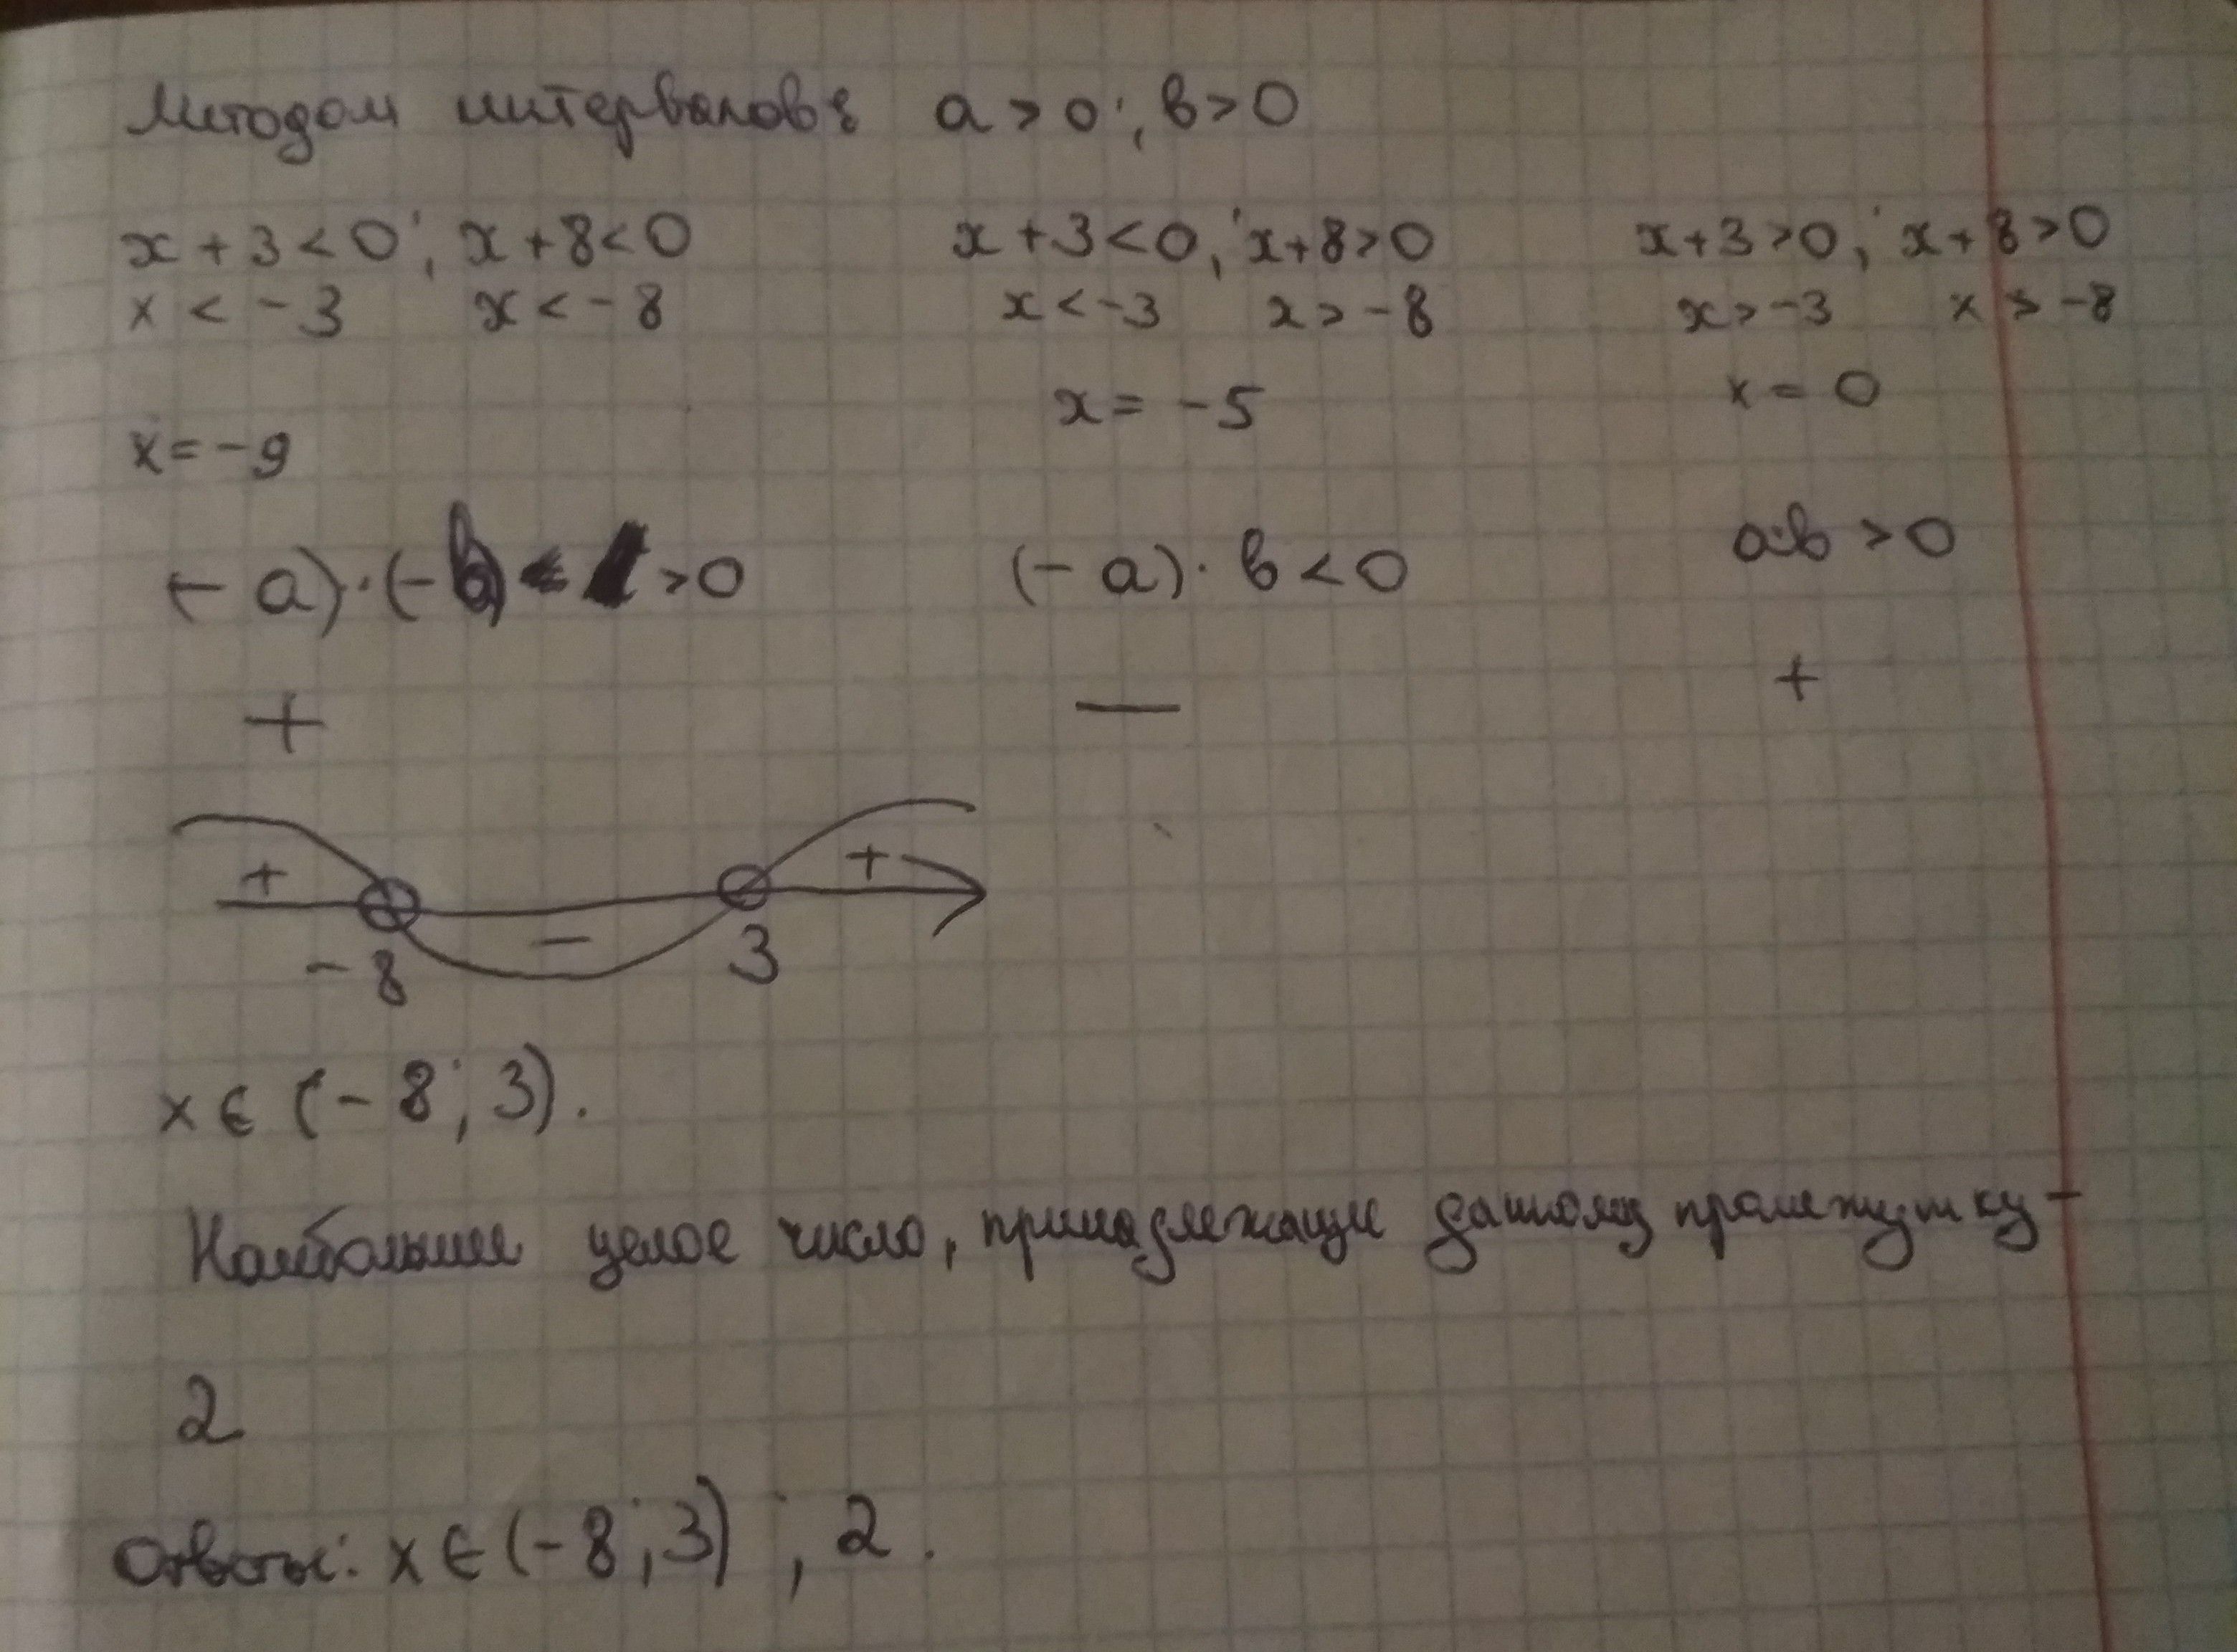 Методом интервалов: a > 0; b > 0
x + 3 < 0; x + 8 < 0 x + 3 < 0; x + 8 > 0 x + 3 > 0; x + 8 > 0
x < -3 x < -8 x < -3 x > -8 x > -3 x > -8
x = -9 x = -5 x = 0
(-a)·(-b) > 0 (-a)·b < 0 a·b > 0
+ — +
+ — +
-8 3
x ∈ (-8; 3).
Наибольшее целое число, принадлежащие данному промежутку -
2
Ответы: x ∈ (-8; 3) ; 2.